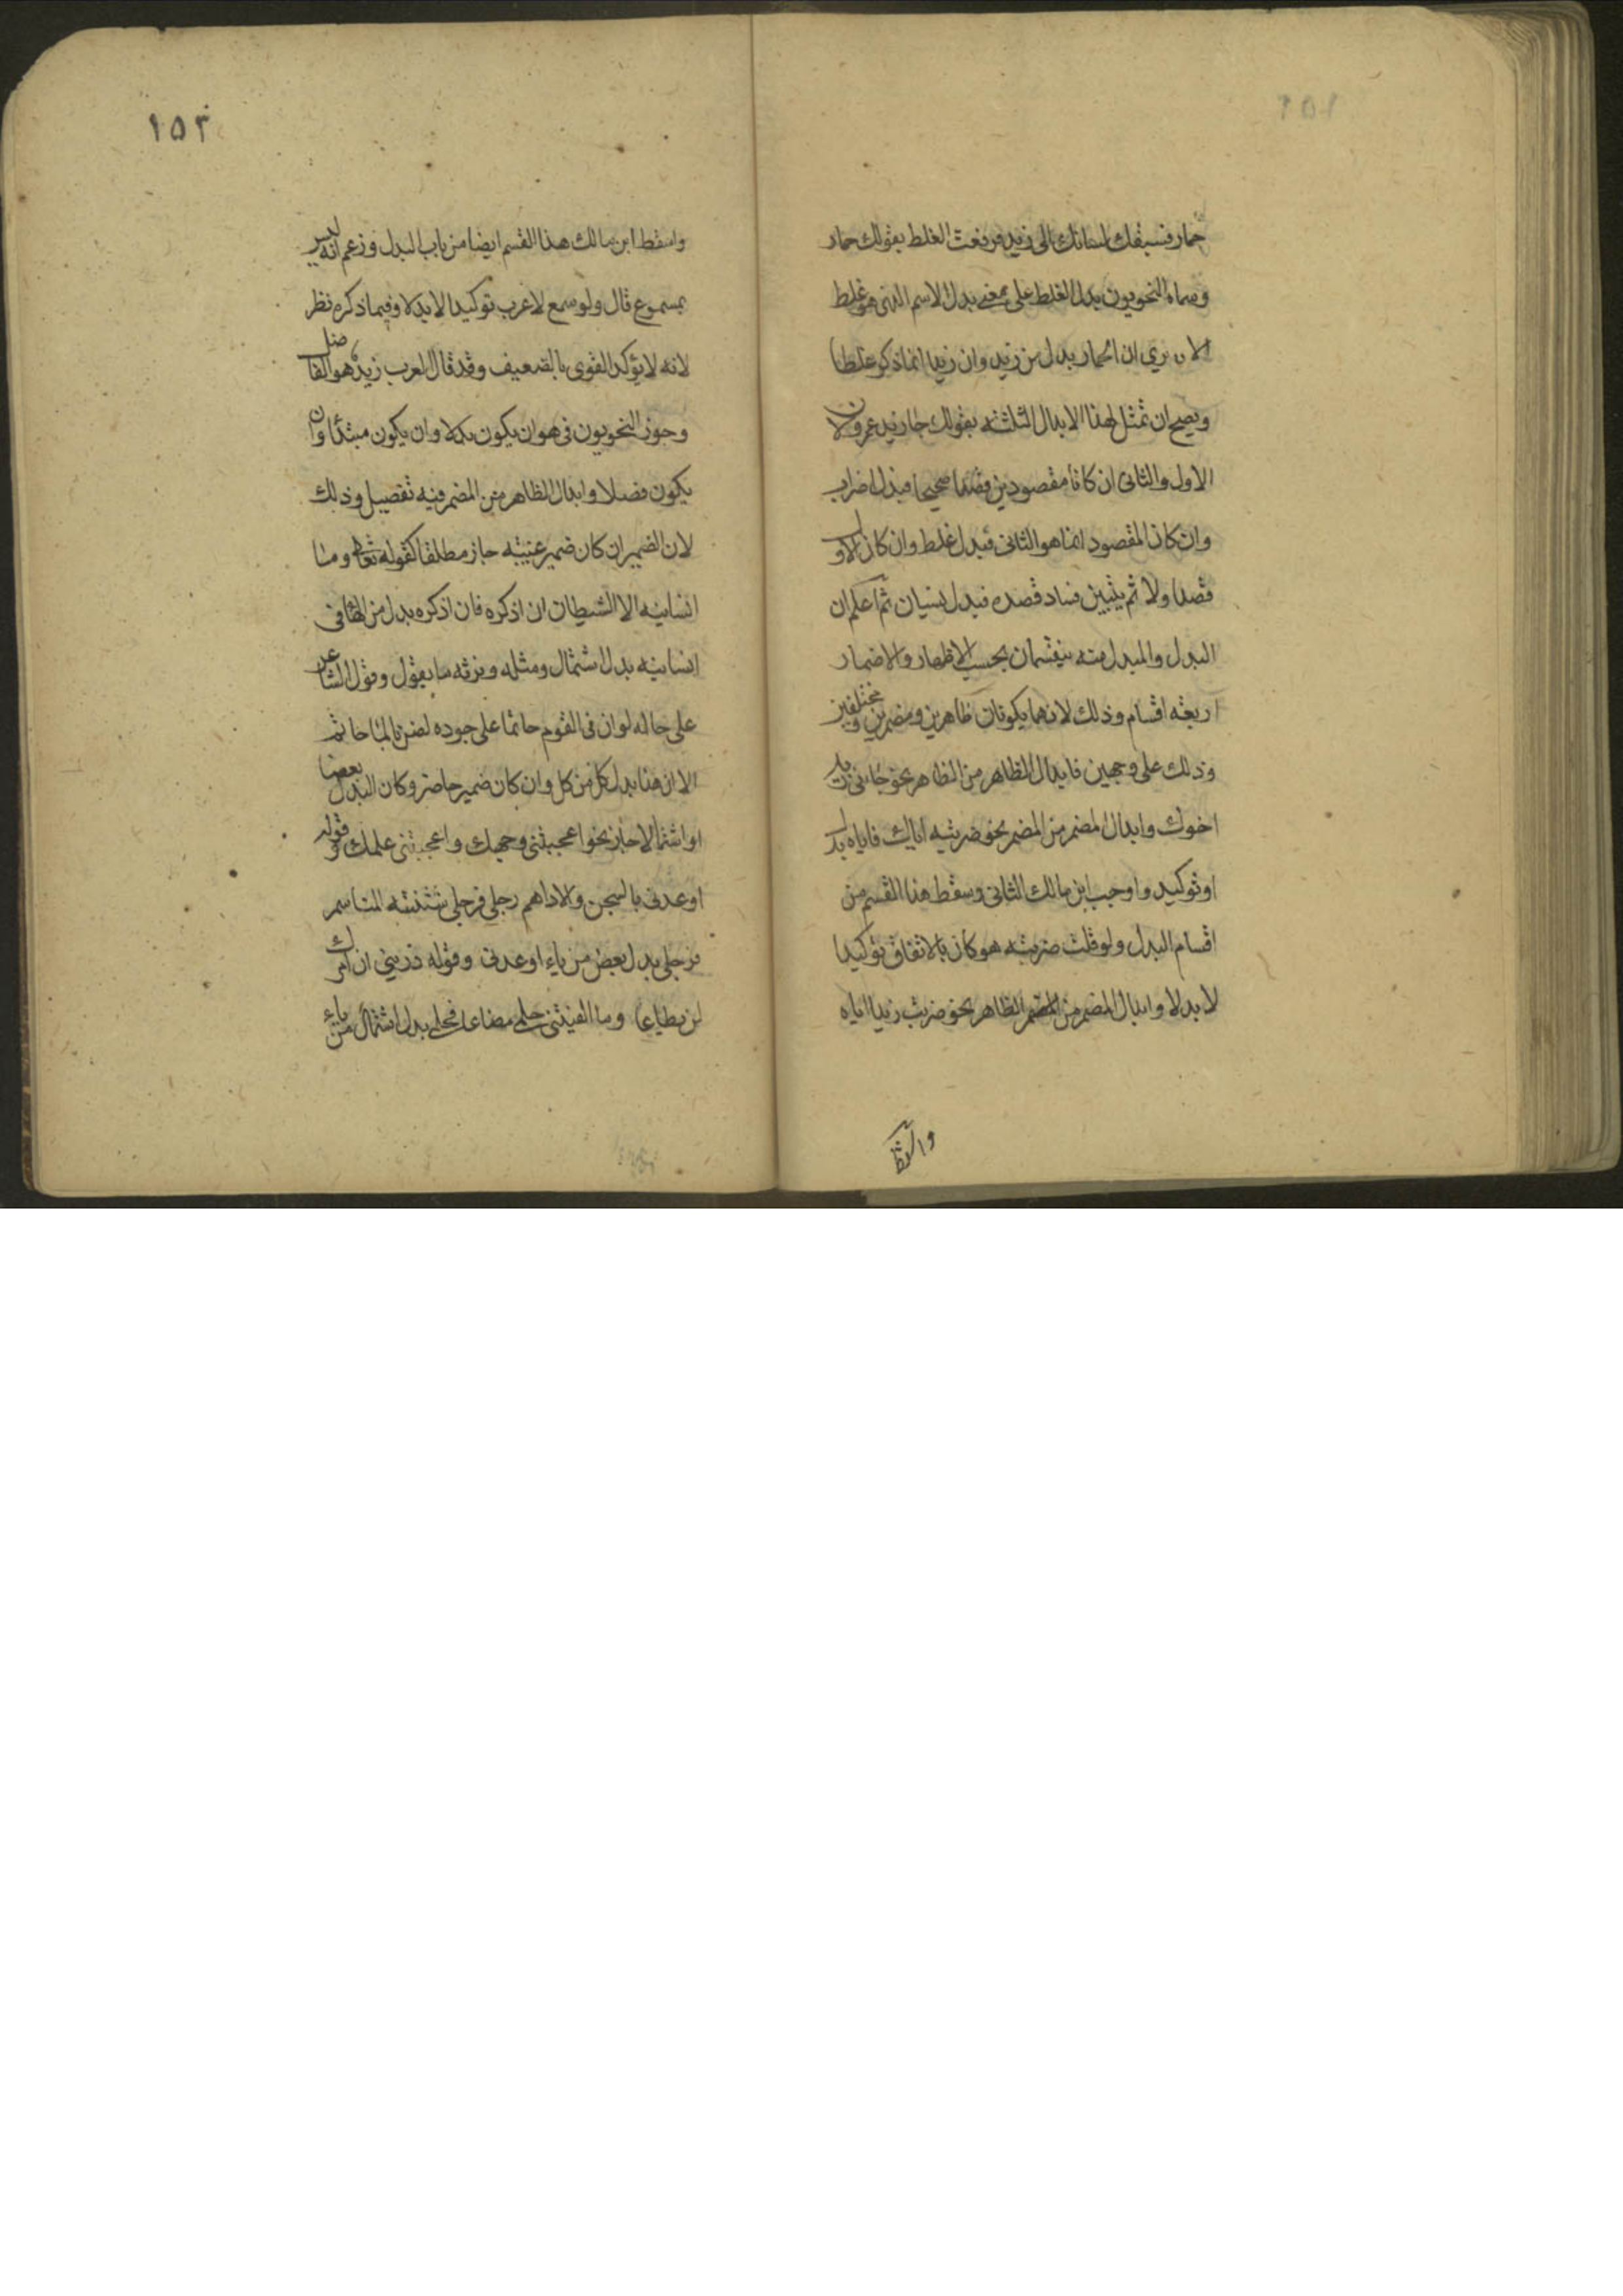 حمار فسبقك لسانك الى زيد فرفعت الغلط بقولك حمار
وسماه النحويون بدل الغلط على معنى بدل الاسم الذى هو غلط
الا ترى ان الحمار بدل من زيد وان زيدا انما ذكر غلطا
ويصح ان تمثل لهذا الابدال الثلثة بقولك جاء زيد عمرو لان
الاول والثانى ان كانا مقصودين قصدا صحيحا فبدل اضراب
وان كان المقصود انما هو الثانى فبدل غلط وان كان الاول
قصدا ولا ثم يتبين فساد قصده فبدل نسيان ثم اعلم ان
البدل والمبدل منه ينقسمان بحسب الاظهار والاضمار
اربعة اقسام وذلك لانهما يكونان ظاهرين ومضمرين ومختلفين
وذلك على وجهين فابدال الظاهر من الظاهر نحو جاءنى زيد
اخوك وابدال المضمر من المضمر نحو ضربته اياك فاياه بدل
او توكيد واوجب ابن مالك الثانى وسقط هذا القسم من
اقسام البدل ولو قلت ضربته هو كان بالاتفاق توكيدا
لا بدلا وابدال المضمر من المضمر الظاهر نحو ضربت زيدا اياه
١٥٣
واسقط ابن مالك هذا القسم ايضا من باب البدل وزعم انه ليس
بمسموع قال ولو سمع لاعرب توكيدا لا بدلا وفيما ذكره نظر
لانه لا يؤكد القوى بالضعيف وقد قال العرب زيد هو الفاضل
وجوز النحويون فى هو ان يكون بدلا وان يكون مبتدأ وان
يكون فصلا وابدال الظاهر من المضمر فيه تفصيل وذلك
لان الضمير ان كان ضمير غيبته جاز مطلقا كقوله تعالى وما
انسانيه الا الشيطان ان اذكره فان اذكره بدل من الها فى
انسانيه بدل اشتمال ومثله ونرثه ما يقول وقول الشاعر
على حاله لو ان فى القوم حاتما على جوده لضن بالماء حاتم
الا ان هذا بدل كل من كل وان كان ضمير حاضر وكان البدل بعضا
او اشتمالا جاز نحو اعجبتنى وجهك واعجبتنى علمك وقوله
اوعدنى بالسجن والاداهم رجلى فرجلى شثنة المناسم
فرجلى بدل بعض من ياء اوعدنى وقوله ذرينى ان امرك
لن يطاعا وما الفيتنى حلمى مضاعا فحلمى بدل اشتمال من ياء